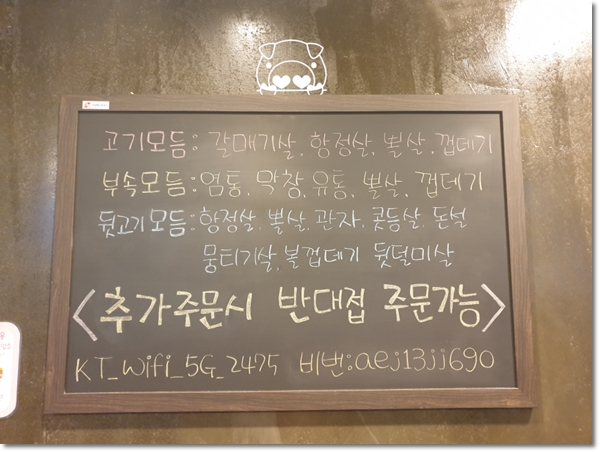 고기모듬: 갈매기살, 항정살, 뽈살, 껍데기
부속모듬: 염통, 막창, 유통, 뽈살, 껍데기
뒷고기모듬: 항정살, 뽈살, 관자, 콧등살, 돈설
뭉티기살, 볼껍데기 뒷덜미살
<추가주문시 반대접 주문가능>
KT_Wifi_5G_2475 비번:aej13jj690